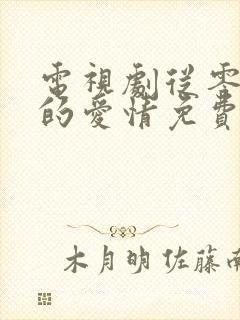 電視劇從零
的愛情免費
木月明 佐藤南